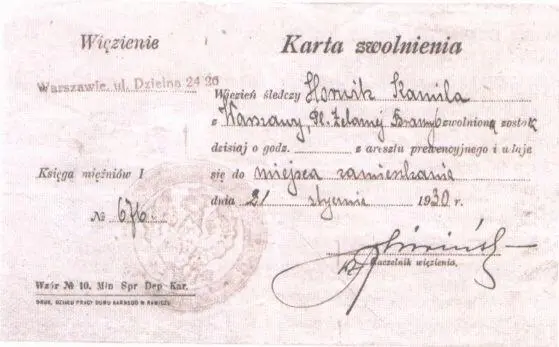 Więzienie
Karta zwolnienia
Warszawie, ul. Dzielna 24 26
Więzień śledczy Horwik Kamila
z Warszawy, Pl. Żelaznej Bramy zwolnioną została
dzisiaj o godz. z aresztu prewencyjnego i udaje
się do miejsca zamieszkania
dnia 21 stycznia 1930 r.
Księga więźniów I
№ 676
Naczelnik więzienia.
Wzór № 10. Min Spr Dep Kar.
DRUK. DZIAŁU PRACY DOMU KARNEGO W RAWICZU